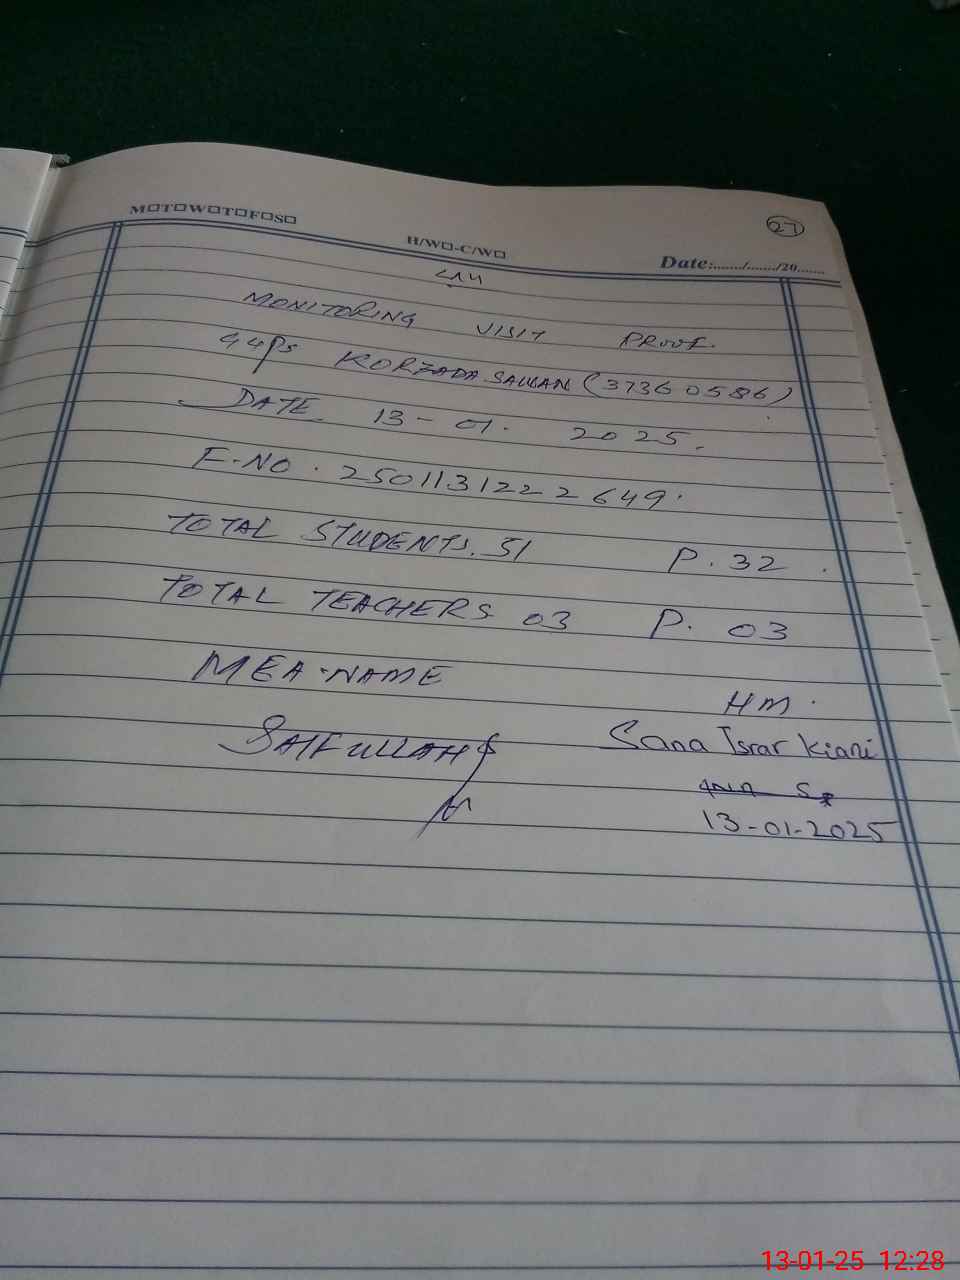 27
M☐T☐W☐T☐F☐S☐
H/W☐-C/W☐
Date:....../......./20.......
MONITORING VISIT PROOF.
GGPS KORZADA SAWAN (37360586)
DATE 13-01. 2025.
F-NO. 2501131222649.
TOTAL STUDENTS. 51 P. 32.
TOTAL TEACHERS 03 P. 03
MEA-NAME
HM.
SAIFULLAH
Sana Israr Kiani
13-01-2025
13-01-25 12:28